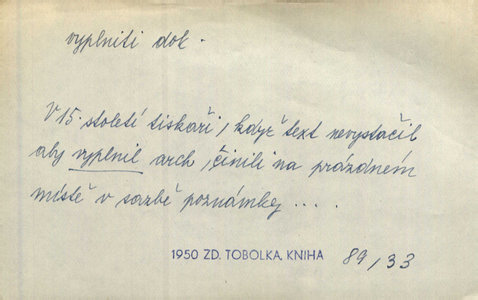 vyplniti dok.
V 15. století tiskaři, když text nevystačil
aby vyplnil arch, činili na prázdném
místě v sazbě poznámky ....
1950 ZD. TOBOLKA, KNIHA 89/33